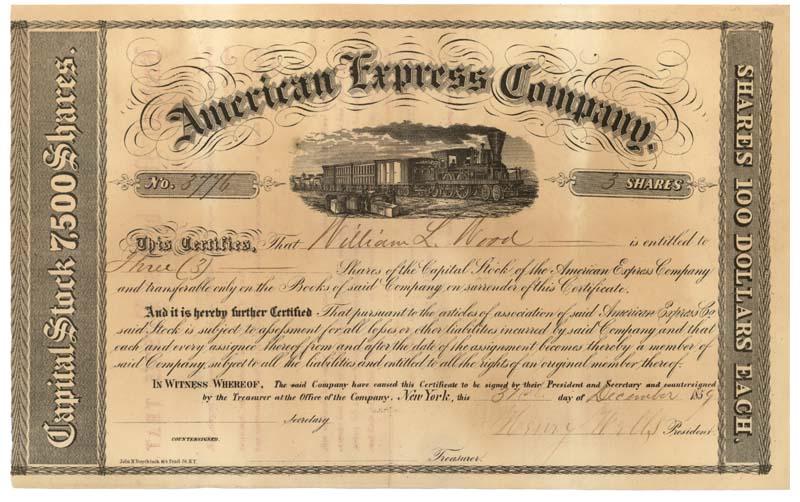 Capital Stock 7,500 Shares.
American Express Company.
SHARES 100 DOLLARS EACH,
No. 3776
3 SHARES
This Certifies, That William L. Wood is entitled to
Three (3) Shares of the Capital Stock of the American Express Company
and transferable only on the Books of said Company on surrender of this Certificate.
And it is hereby further Certified That pursuant to the articles of association of said American Express Co
said Stock is subject to assessment for all losses or other liabilities incurred by said Company and that
each and every assignee thereof from and after the date of the assignment becomes thereby a member of
said Company, subject to all the liabilities and entitled to all the rights of an original member thereof.
IN WITNESS WHEREOF, The said Company have caused this Certificate to be signed by their President and Secretary and countersigned
by the Treasurer at the Office of the Company. New York, this 31st day of December 1859
Secretary
Henry Wells President.
COUNTERSIGNED.
Treasurer.